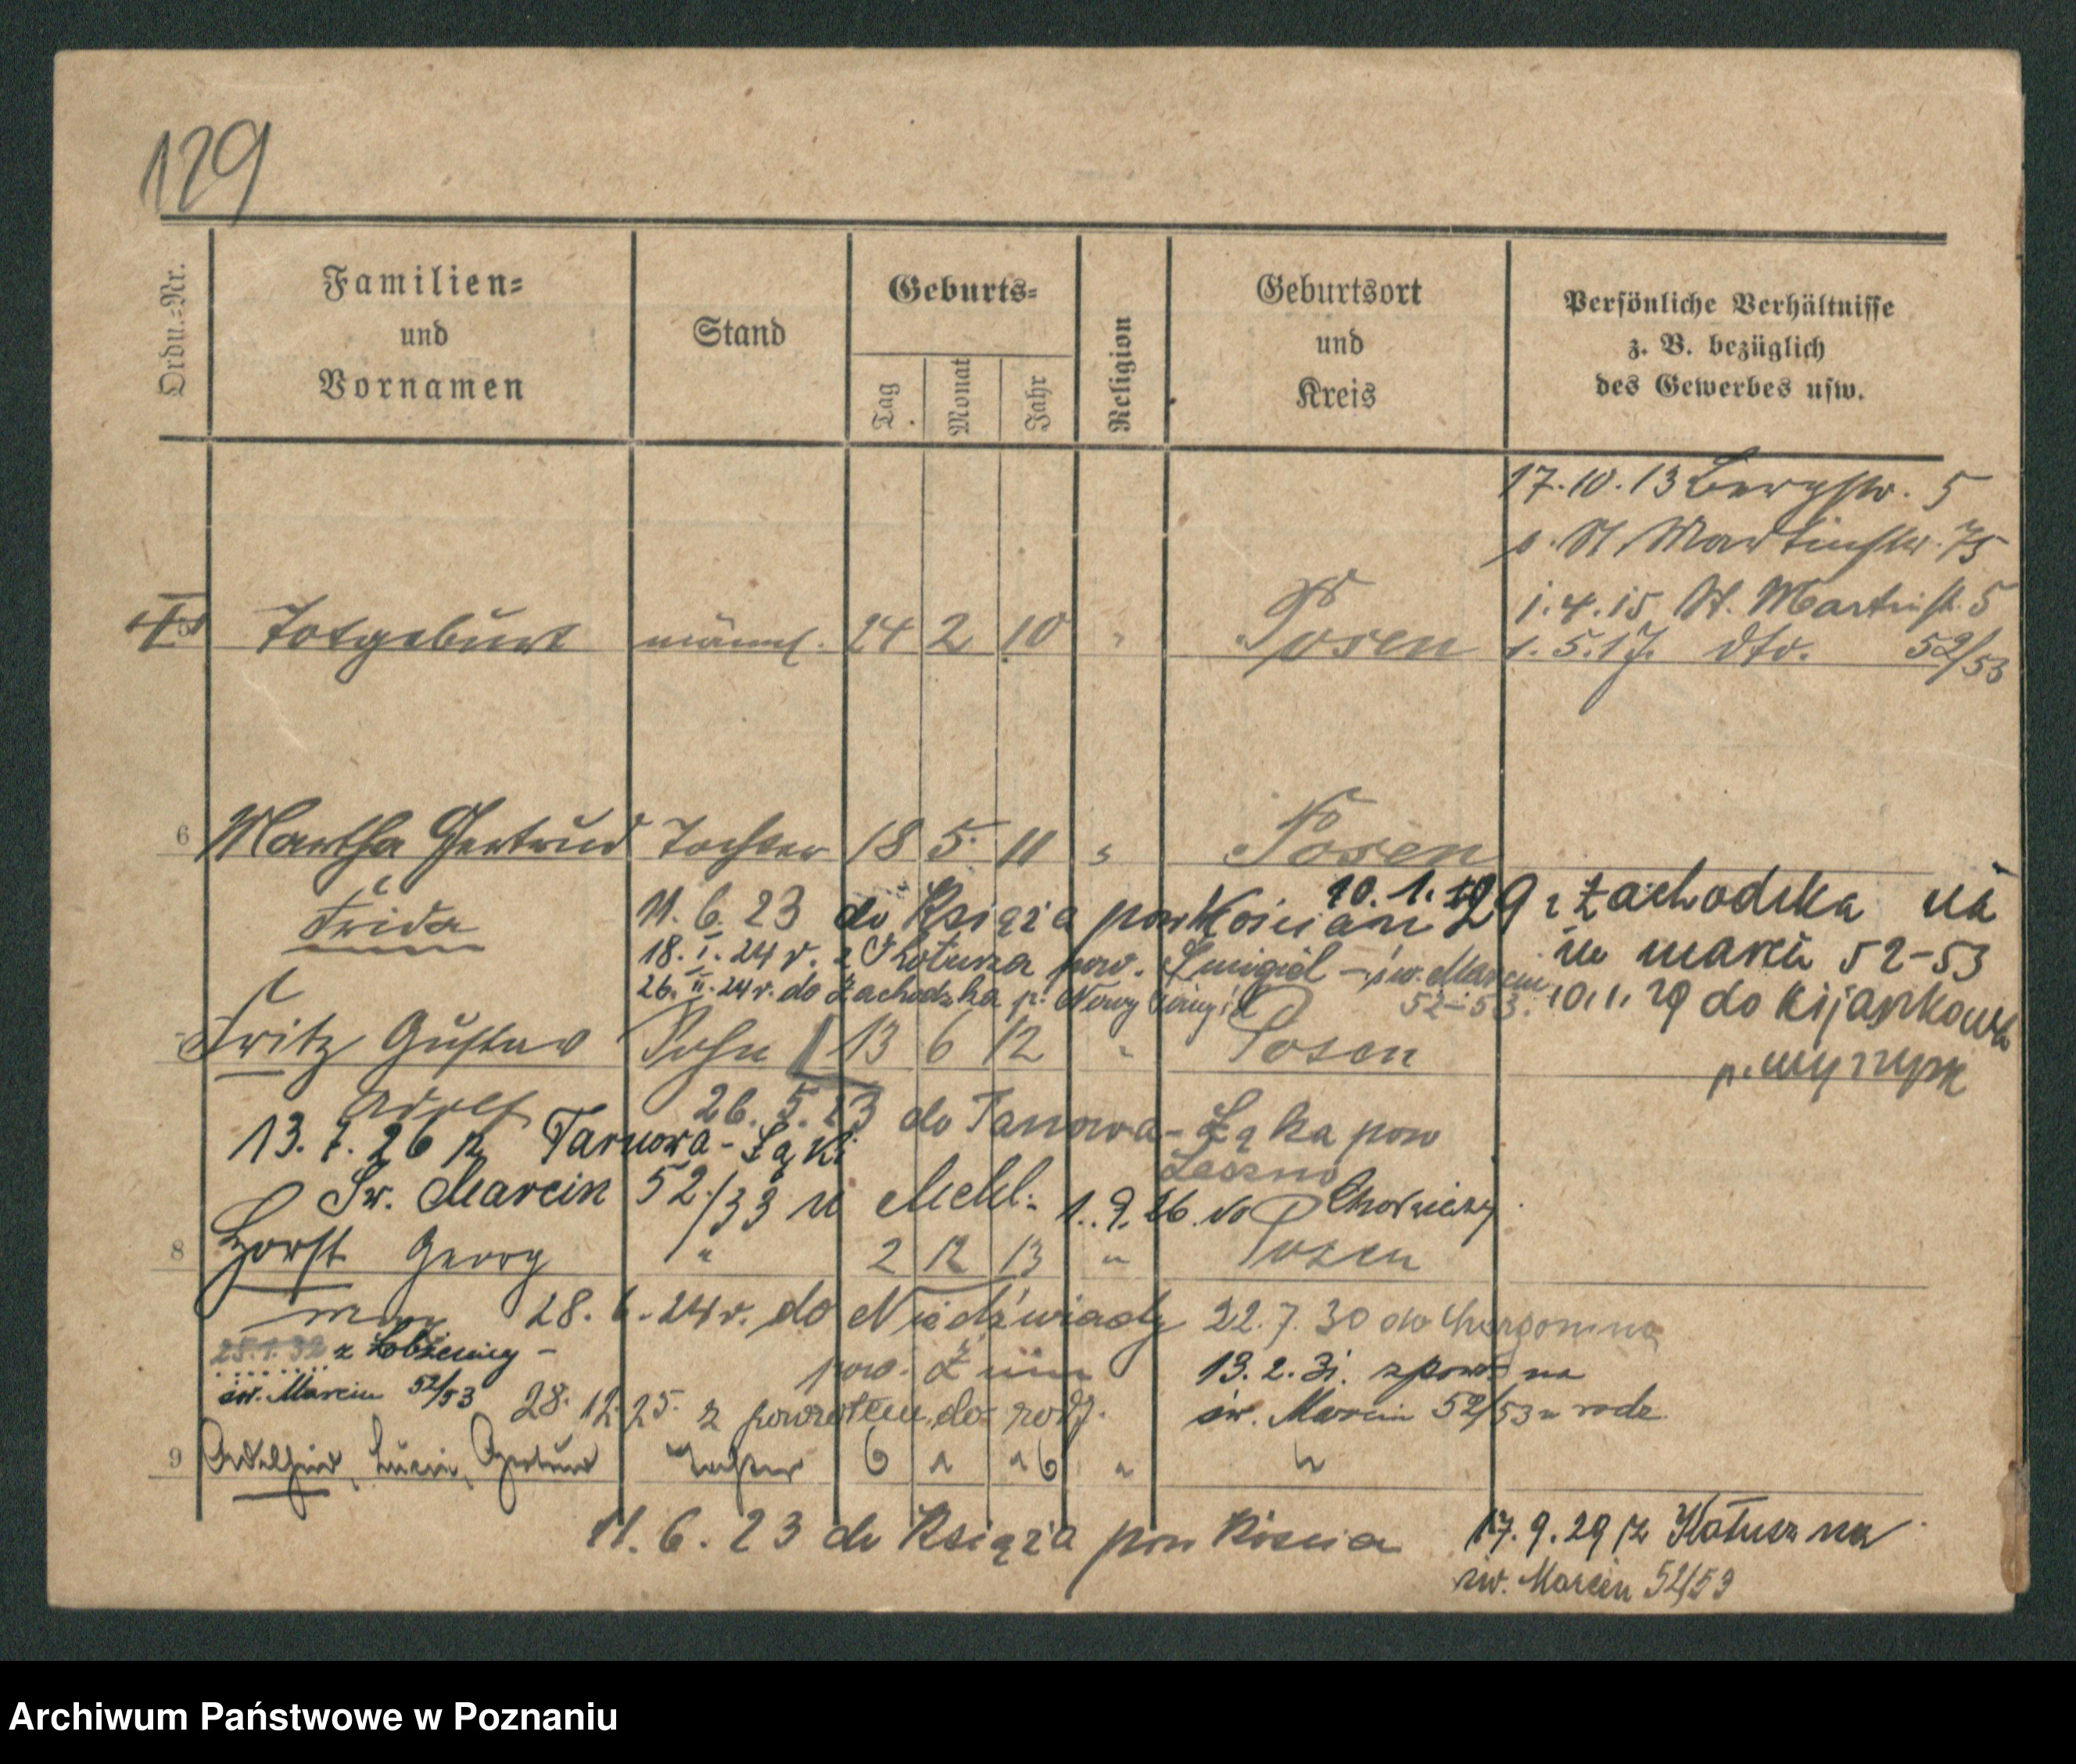 129
Ordn.-Nr.
Familien-
und
Vornamen
Stand
Geburts-
Tag
Monat
Jahr
Religion
Geburtsort
und
Kreis
Persönliche Verhältnisse
z. B. bezüglich
des Gewerbes usw.
17.10.13 Bergstr. 5
St. Martinstr. 75
1.4.15 St. Martinst. 5
Totgeburt männl. 24 2 10 " Posen 1.5.17. dto. 52/53
6 Martha Gertrud Tochter 18 5. 11 " Posen
Frida
11.6.23 do Książa pow Kościan 10.1.29 z Zachodzka na
św marcin 52-53
18.I.24 r. z Kotusza pow. Śmigiel - św. Marcin
52-53.
26.II.24 r. do Zachodzka p. Nowy
10.1.29 do Kijaszkowa
p. wyrzysk
Fritz Gustav Sohn 13 6 12 " Posen
Adolf
26.5.23 do Tarnowa-Łąka pow
Leszno
13.7.26 z Tarnowa-Łąki
Św. Marcin 52/53 u Mehl. 1.9.26 do Chodzieży
8 Horst Georg " 2 12 13 " Posen
Max
28.6.24 r. do Niedźwiady
pow. Żnin
22.7.30 do Margonina
z Łobżenicy -
św. Marcin 52/53
13.2.31. z pow. na
św. Marcin 52/53 u rodz.
28.12.25. z powrotem do rodz.
9 Adelheid, Lucie, Gertrud Tochter 6 " 16 " "
11.6.23 do Książa pow Koscia
17.9.29 z Kotusz na
św. Marcin 52/53
Archiwum Państwowe w Poznaniu